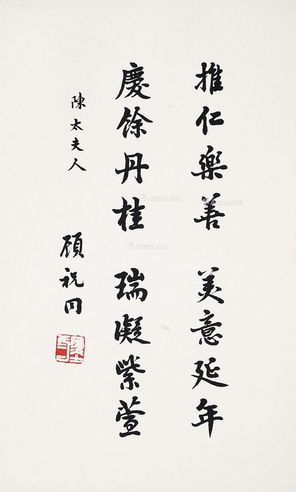 推仁樂善 美意延年
慶餘丹桂 瑞凝紫萱
陳太夫人
顧祝同